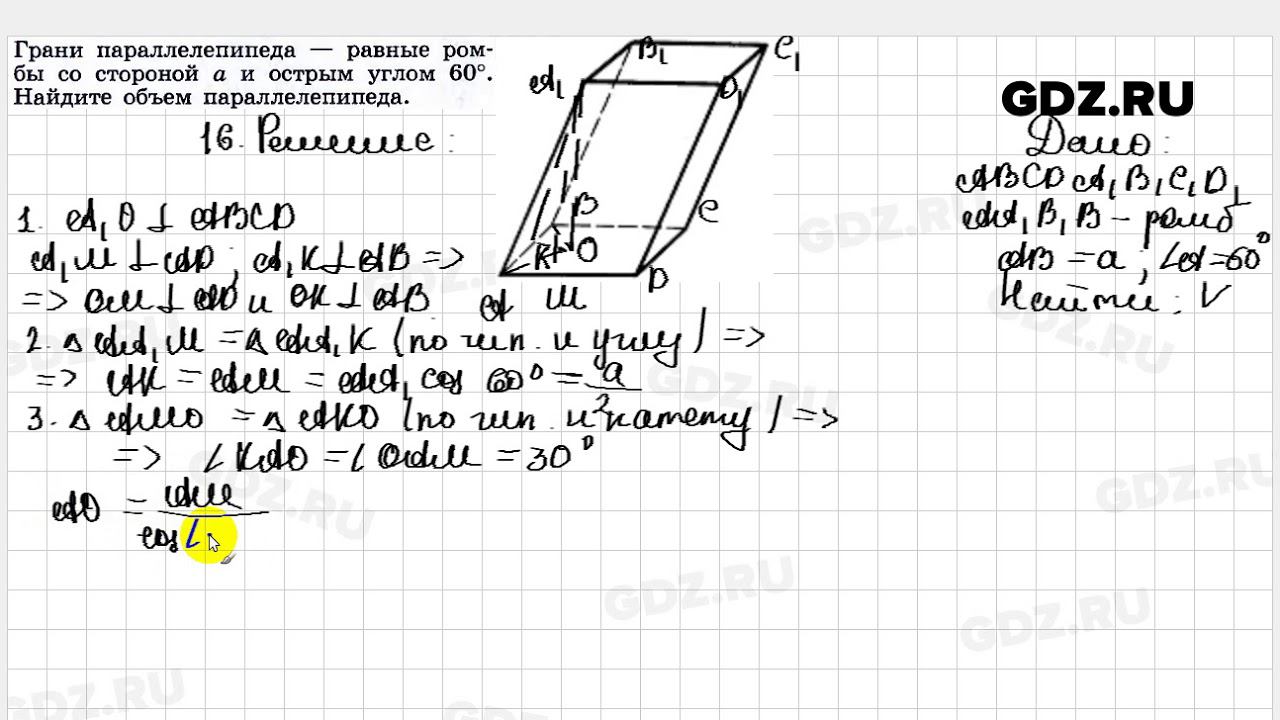 Грани параллелепипеда — равные ром-
бы со стороной a и острым углом 60°.
Найдите объем параллелепипеда.
GDZ.RU
16. Решение:
Дано:
ABCDA₁B₁C₁D₁
AA₁B₁B – ромб
AB = a; ∠A = 60°
Найти: V
B₁
C₁
A₁
D₁
B
C
K
O
D
A
M
1. A₁O ⊥ ABCD
A₁M ⊥ AD; A₁K ⊥ AB =>
=> OM ⊥ AD и OK ⊥ AB
2. △ AA₁M = △ AA₁K (по гип. и углу) =>
=> AK = AM = AA₁ cos 60° = a/2
3. △ AMO = △ AKO (по гип. и катету) =>
=> ∠ KAO = ∠ OAM = 30°
AO = AM/cos∠
GDZ.RU
GDZ.RU
GDZ.RU
GDZ.RU
GDZ.RU
GDZ.RU
GDZ.RU
GDZ.RU
GDZ.RU
GDZ.RU